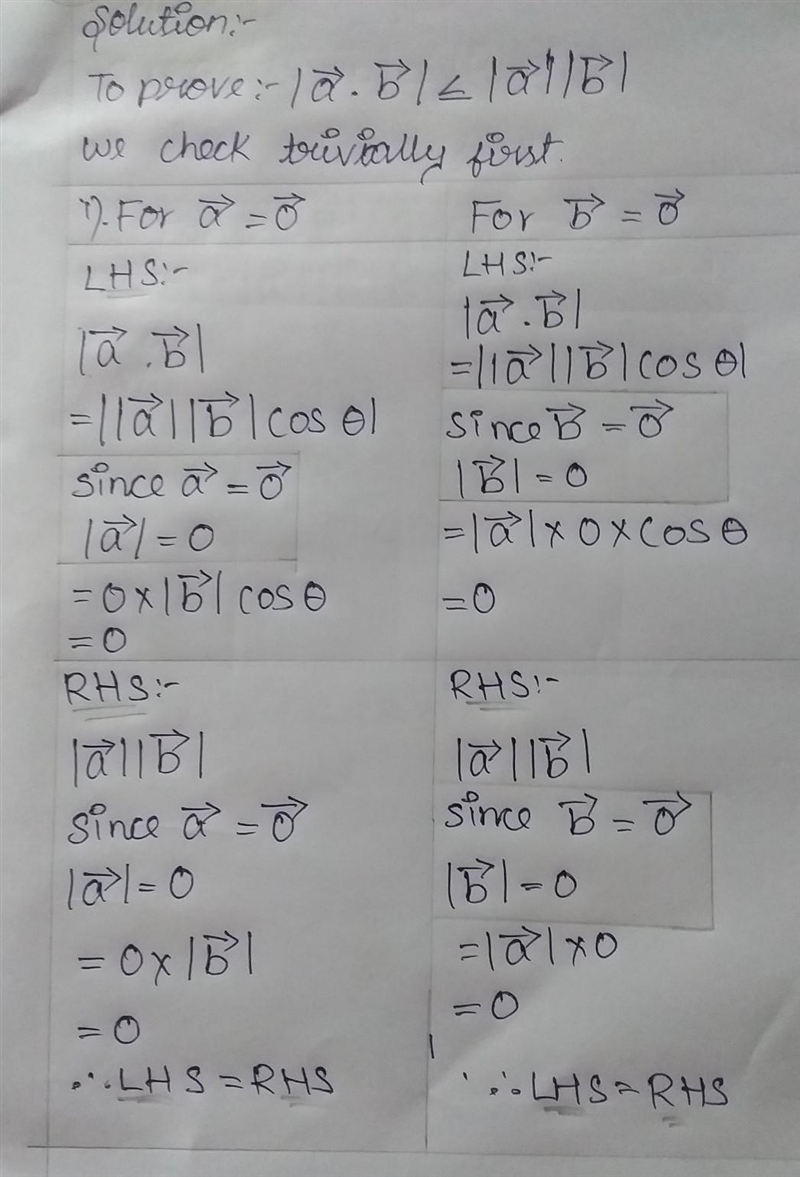 Solution:-
To prove:- |a⃗ . b⃗| ≤ |a⃗||b⃗|
we check trivially first.
1). For a⃗ = 0⃗
LHS:-
|a⃗ . b⃗|
= ||a⃗||b⃗| cos θ|
since a⃗ = 0⃗
|a⃗| = 0
= 0 × |b⃗| cos θ
= 0
RHS:-
|a⃗||b⃗|
since a⃗ = 0⃗
|a⃗| = 0
= 0 × |b⃗|
= 0
∴ LHS = RHS
For b⃗ = 0⃗
LHS:-
|a⃗ . b⃗|
= ||a⃗||b⃗| cos θ|
since b⃗ = 0⃗
|b⃗| = 0
= |a⃗| × 0 × cos θ
= 0
RHS:-
|a⃗||b⃗|
since b⃗ = 0⃗
|b⃗| = 0
= |a⃗| × 0
= 0
∴ LHS = RHS